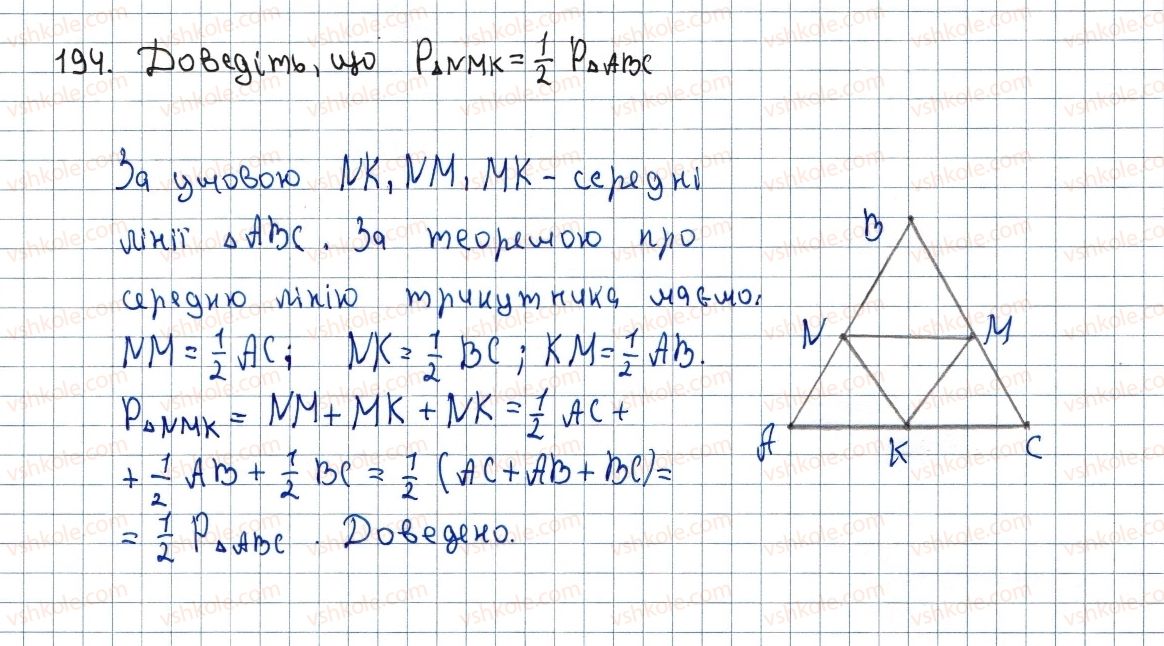 194. Доведіть, що P△NMK = 1/2 P△ABC
За умовою NK, NM, MK - середні
лінії △ABC. За теоремою про
середню лінію трикутника маємо:
NM = 1/2 AC; NK = 1/2 BC; KM = 1/2 AB.
P△NMK = NM + MK + NK = 1/2 AC +
+ 1/2 AB + 1/2 BC = 1/2 (AC + AB + BC) =
= 1/2 P△ABC. Доведено.
B
N M
A K C
vshkole.com